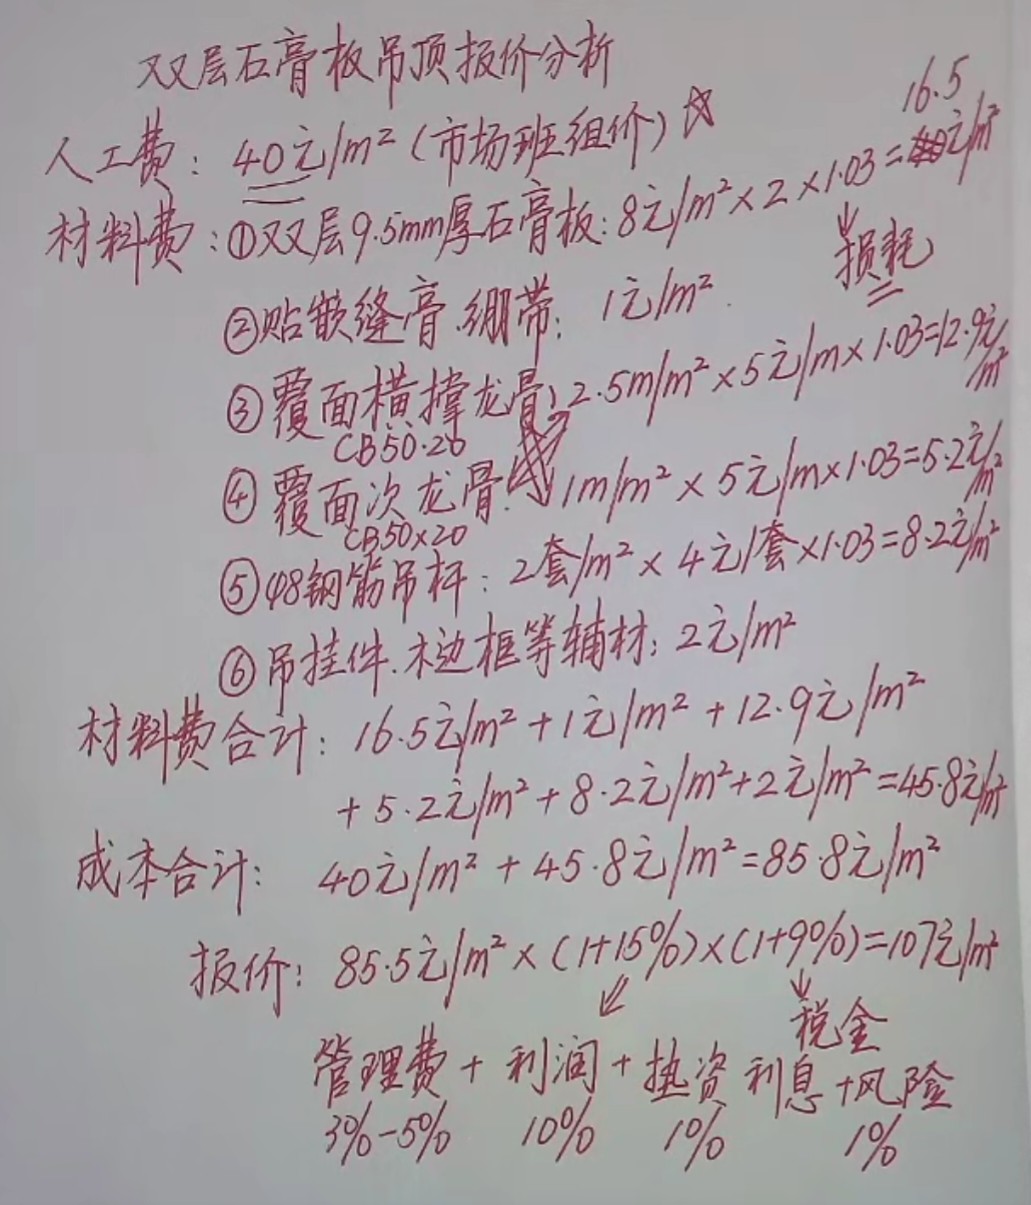 双层石膏板吊顶报价分析
人工费：40元/m²（市场班组价）☆
16.5
材料费：①双层9.5mm厚石膏板：8元/m²×2×1.03=元/m²
损耗
②贴嵌缝膏.绷带：1元/m²
③覆面横撑龙骨：2.5m/m²×5元/m×1.03=12.9元/m²
CB50·20
④覆面次龙骨：1m/m²×5元/m×1.03=5.2元/m²
CB50×20
⑤φ8钢筋吊杆：2套/m²×4元/套×1.03=8.2元/m²
⑥吊挂件.木边框等辅材：2元/m²
材料费合计：16.5元/m²+1元/m²+12.9元/m²
+5.2元/m²+8.2元/m²+2元/m²=45.8元/m²
成本合计：40元/m²+45.8元/m²=85.8元/m²
报价：85.5元/m²×(1+15%)×(1+9%)=107元/m²
税金
管理费+利润+垫资利息+风险
3%-5% 10% 1% 1%